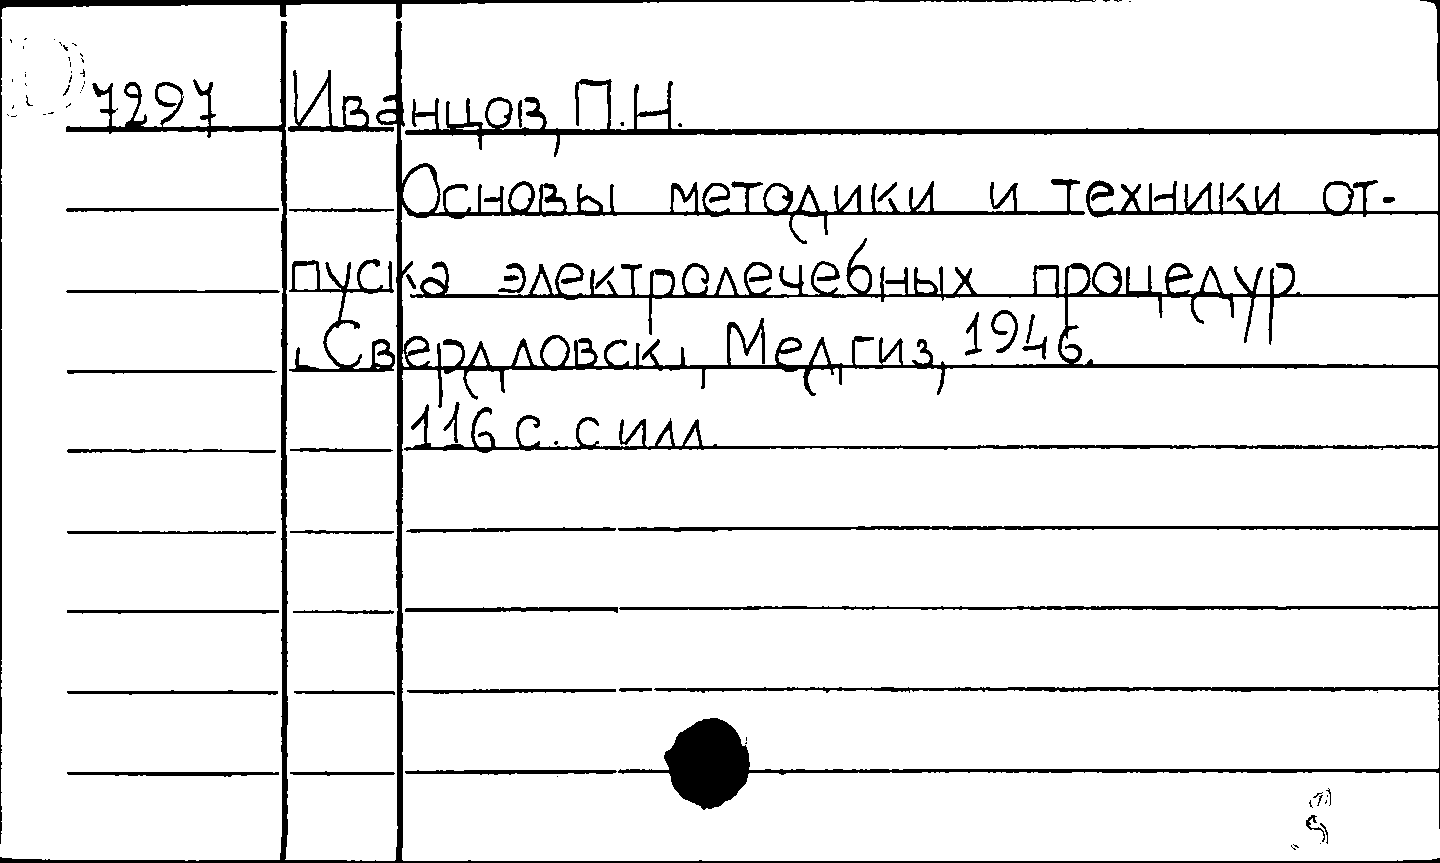 7297 Иванцов, П.Н.
Основы методики и техники от-
пуска электролечебных процедур.
[Свердловск], Медгиз, 1946.
116 с. с илл.